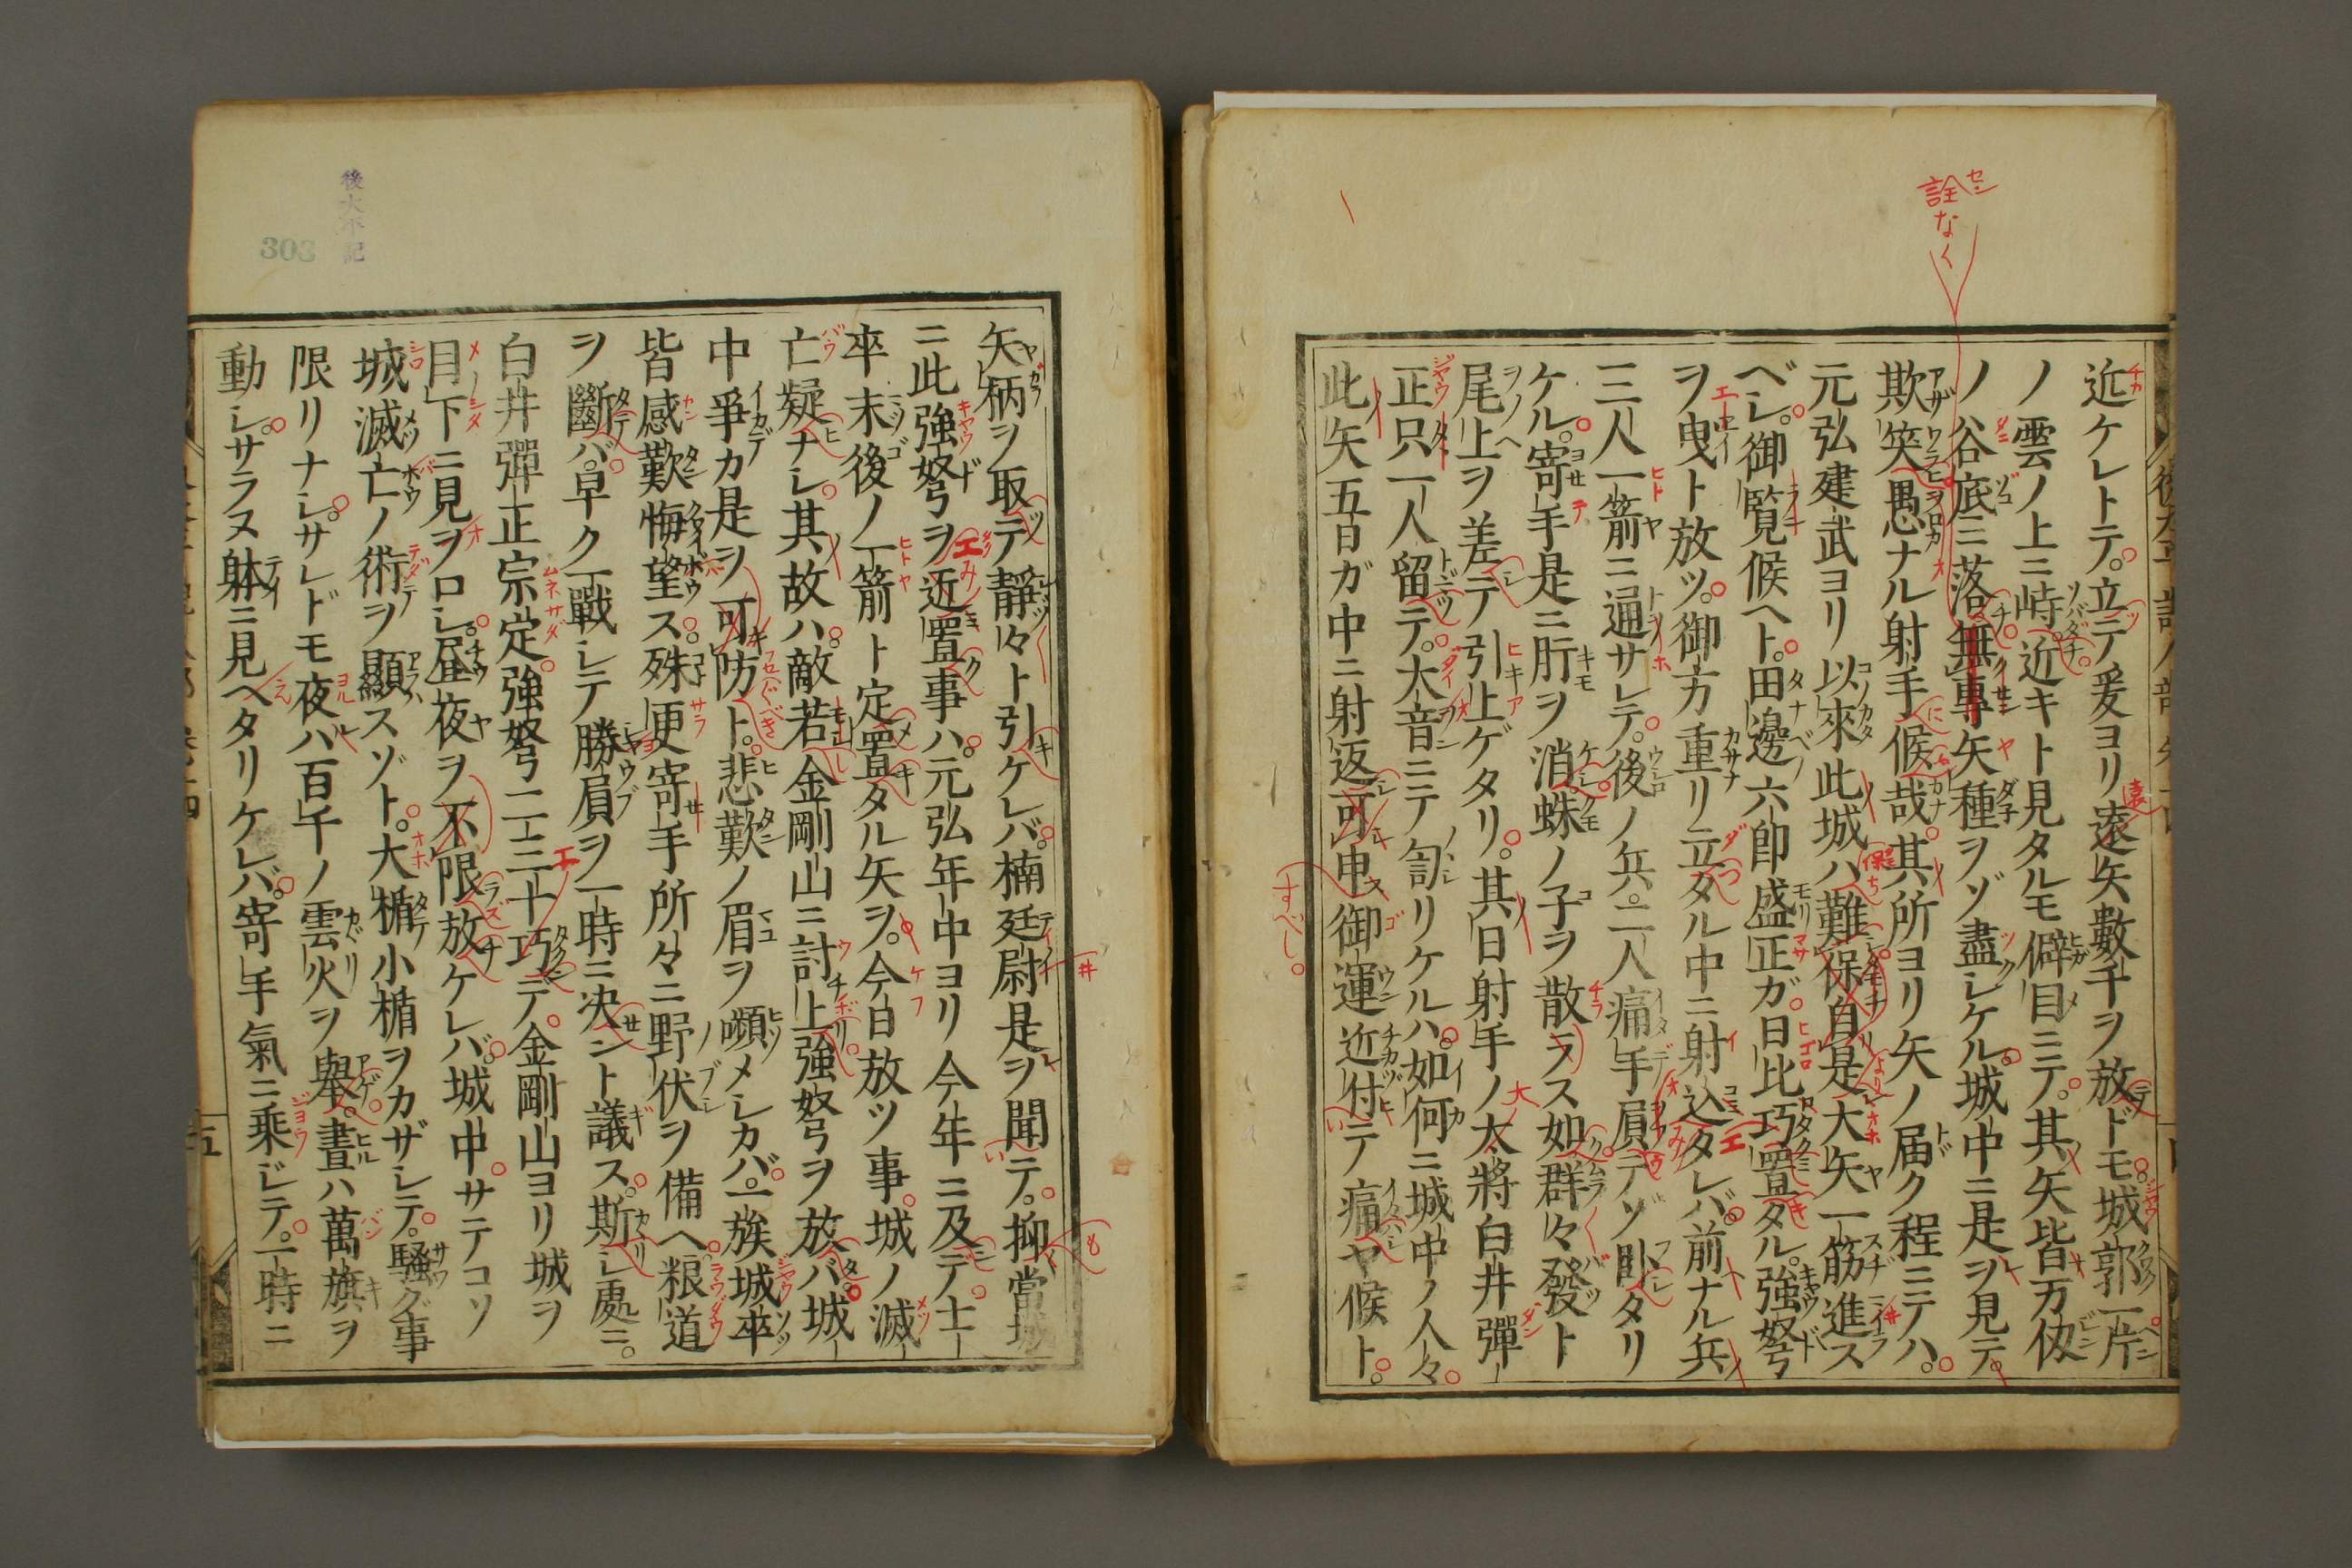 詮なく
近ケレトテ。立テ爰ヨリ遠矢數千ヲ放ドモ。城郭一片
ノ雲ノ上ニ峙。近キト見タルモ僻目ニテ。其矢皆万仭
ノ谷底ニ落。無專矢種ヲゾ盡シケル。城中ニ是ヲ見テ。
欺笑。愚ナル射手ニ候哉。其所ヨリ矢ノ届ク程ニテハ。
元弘建武ヨリ以來此城ハ難保。自是大矢一筋進ス
ベシ。御覽候ヘト。田邊六郎盛正ガ。日比巧置タル。強弩
ヲ曳ト放ツ。御方重リ立タル中ニ射込タレバ。前ナル兵
三人一箭ニ通サレテ。後ノ兵。二人痛手肩テゾ卧タリ
ケル。寄手是ニ肝ヲ消。蛛ノ子ヲ散ラス如。群々發ト
尾上ヲ差テ引上ゲタリ。其日射手ノ大將白井彈
正只一人留テ。大音ニテ訇リケルハ。如何ニ城中ノ人々。
此矢五百ガ中ニ射返可申。御運近付テ痛ヤ候ト。
すべし。
後太平記
303
矢柄ヲ取テ靜々ト引ケレバ。楠廷尉是ヲ聞テ。抑當城
ニ此強弩ヲ近置事ハ。元弘年中ヨリ今年ニ及デ。士
卒末後ノ一箭ト定置タル矢ヲ。今日放ツ事。城ノ滅
亡疑ナシ。其故ハ。敵若金剛山ニ討上。強弩ヲ放バ。城
中爭カ是ヲ可防ト。悲歎ノ眉ヲ嚬メシカバ。一族城卒
皆感歎悔望ス。殊更寄手所々ニ野伏ヲ備ヘ。粮道
ヲ斷バ。早ク一戰シテ勝肩ヲ一時ニ决シト議ス。斯シ處ニ。
白井彈正宗定。強弩二三十巧テ。金剛山ヨリ城ヲ
目下ニ見ヲロシ。昼夜ヲ不限放ケレバ。城中。サテコソ
城滅亡ノ術ヲ顯スゾト。大楯小楯ヲカザシテ。騷グ事
限リナシ。サレドモ夜ハ百千ノ雲火ヲ擧。晝ハ萬旗ヲ
動シ。サラヌ躰ニ見ヘタリケレバ。寄手氣ニ乘ジテ。一時ニ
五